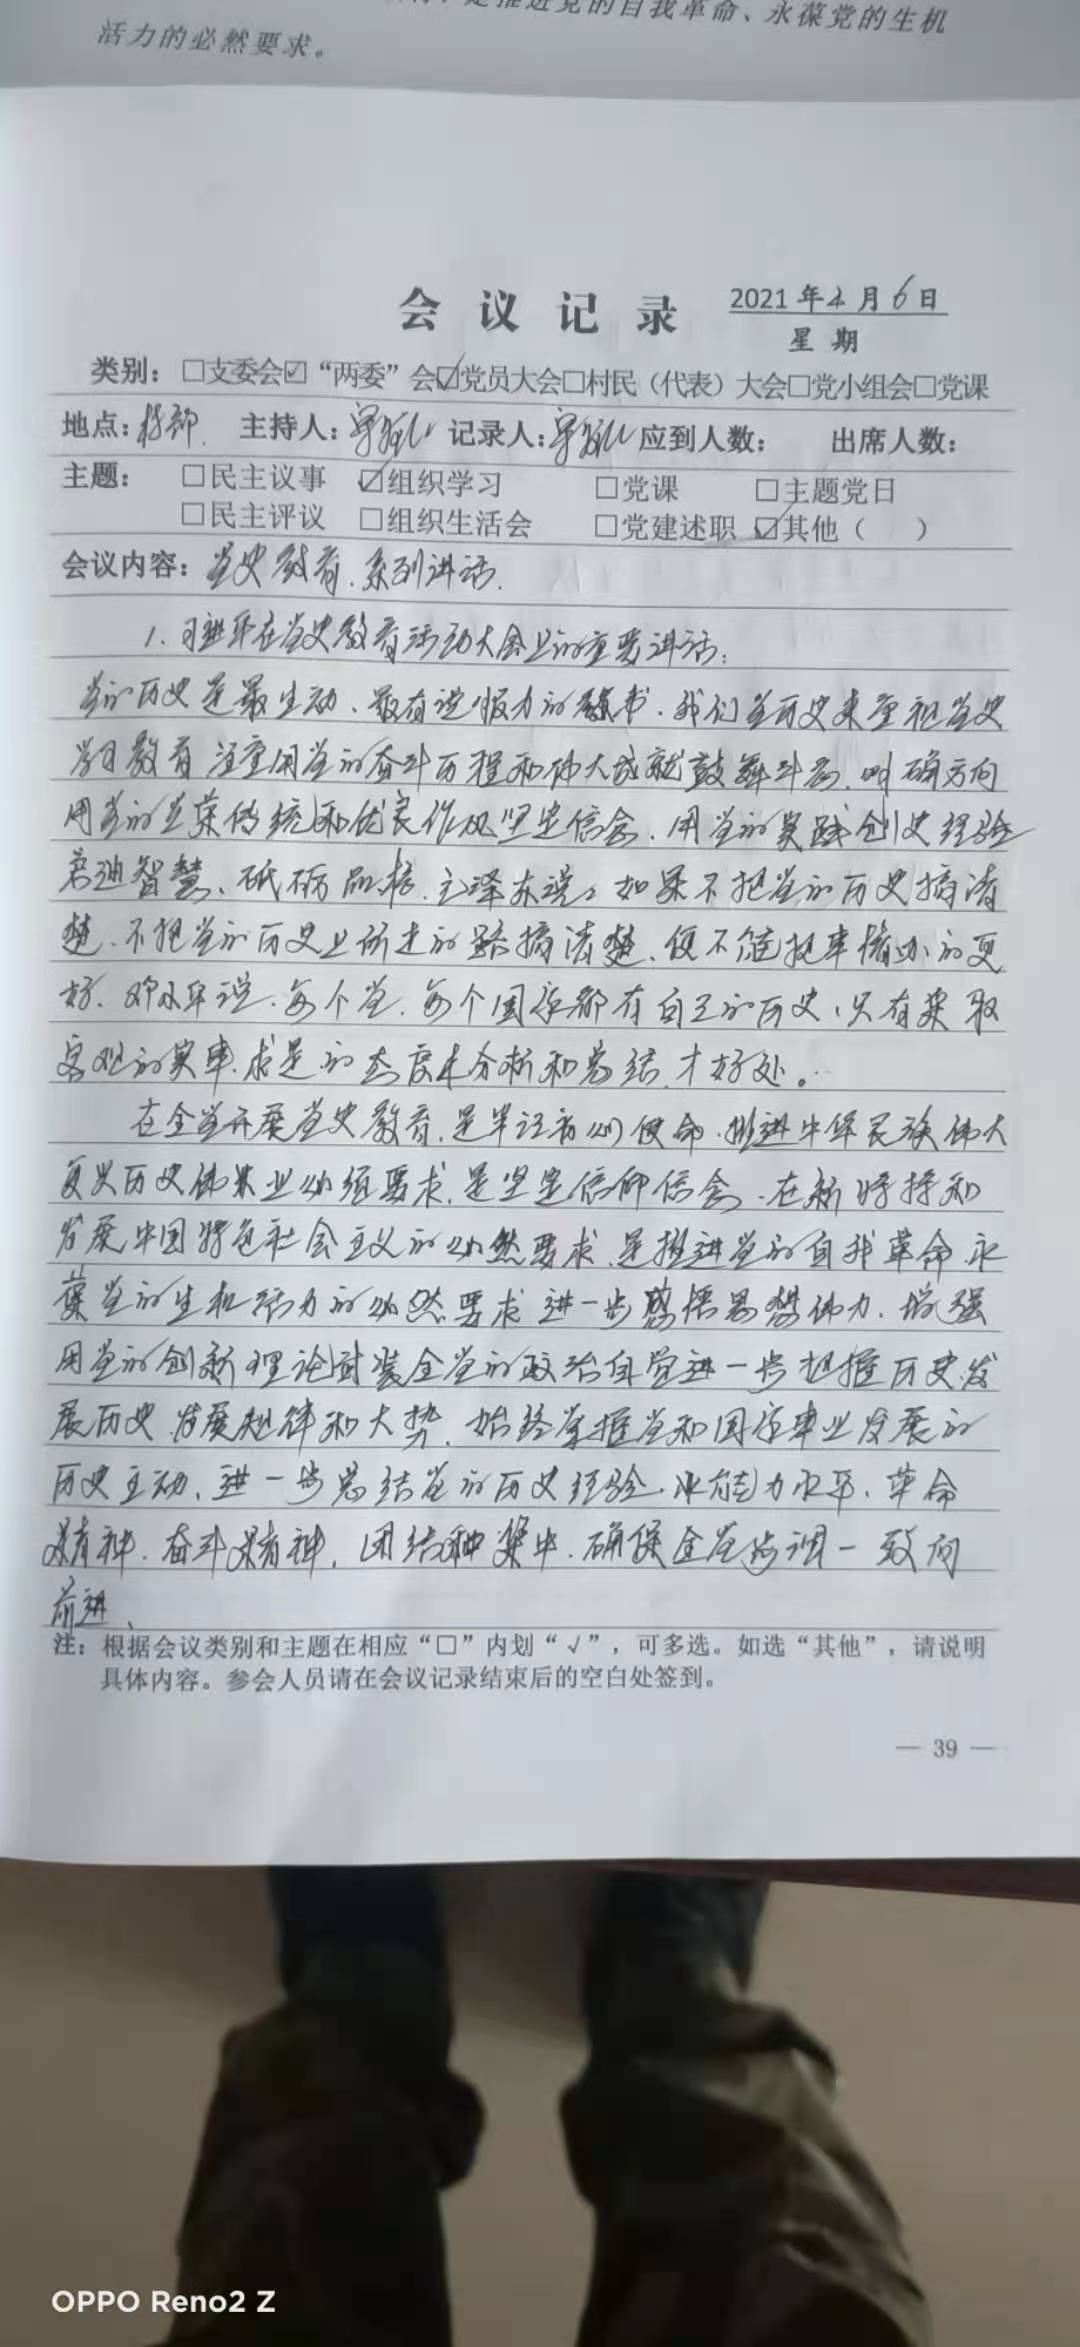 是推进党的自我革命、永葆党的生机
活力的必然要求。
会议记录
2021年2月6日
星期
类别：□支委会☑“两委”会☑党员大会□村民（代表）大会□党小组会□党课
地点：村部 主持人： 记录人： 应到人数： 出席人数：
主题： □民主议事 ☑组织学习 □党课 □主题党日
□民主评议 □组织生活会 □党建述职 ☑其他（ ）
会议内容：党史教育、系列讲话.
1. 习近平在党史教育活动大会上的重要讲话：
党的历史是最生动、最有说服力的教书、我们党历史来重视党史
学习教育 注重用党的奋斗历程和伟大成就鼓舞斗志、明确方向
用党的光荣传统和优良作风坚定信念、用党的实践创史经验
启迪智慧、砥砺品格、毛泽东说：如果不把党的历史搞清
楚、不把党的历史上所走的路搞清楚、便不能把事情办的更
好、邓小平说、每个党、每个国家都有自己的历史、只有采取
客观的实事求是的态度来分析和总结、才好处。
在全党开展党史教育、是牢记初心使命、推进中华民族伟大
复兴历史伟业必须要求、是坚定信仰信念、在新时持和
发展中国特色社会主义的必然要求、是推进党的自我革命、永
葆党的生机活力的必然要求 进一步感悟思想伟力、增强
用党的创新理论武装全党的政治自觉进一步把握历史发
展历史 发展规律和大势、始终掌握党和国家事业发展的
历史主动、进一步总结党的历史经验、能力水平、革命
精神、奋斗精神、团结 集中、确保全党步调一致向
前进、
注：根据会议类别和主题在相应“□”内划“√”，可多选。如选“其他”，请说明
具体内容。参会人员请在会议记录结束后的空白处签到。
— 39 —
OPPO Reno2 Z